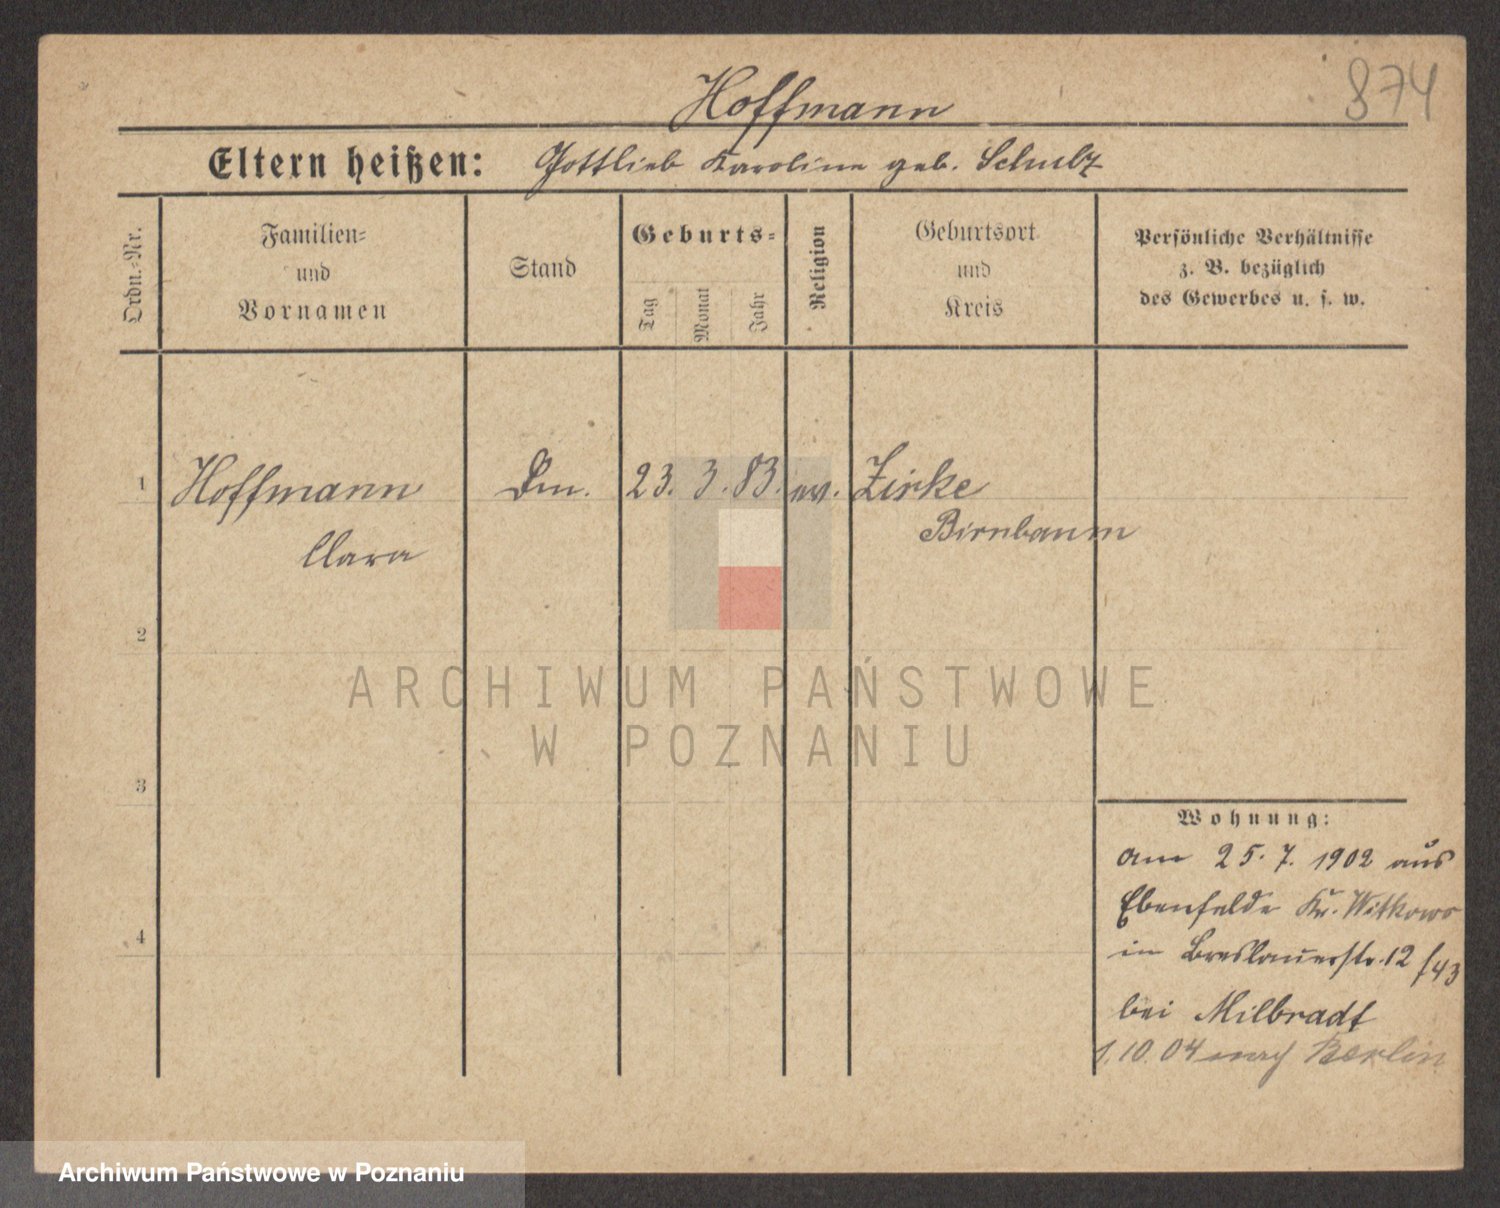 874
Hoffmann
Eltern heißen: Gottlieb Karoline geb. Schulz
Ordn.-Nr.
Familien-
und
Vornamen
Stand
Geburts-
Tag
Monat
Jahr
Religion
Geburtsort
und
Kreis
Persönliche Verhältnisse
z. B. bezüglich
des Gewerbes u. s. w.
1 Hoffmann 23. 3. 83. ev. Zirke
Clara Birnbaum
2
ARCHIWUM PAŃSTWOWE
W POZNANIU
3
Wohnung:
am 25. 7. 1902 aus
Ebenfelde Kr. Witkowo
4
in Breslauerstr. 12/43
bei Milbradt
1. 10. 04 nach Berlin
Archiwum Państwowe w Poznaniu